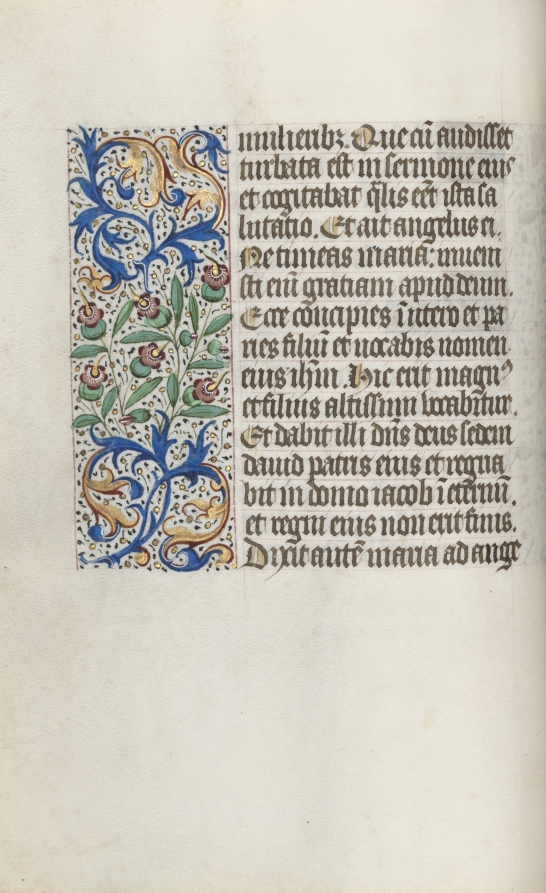 mulieribȝ. Que cū audisset
turbata est in sermone eius
et cogitabat q̄lis eēt ista sa
lutatio. Et ait angelus ei.
Ne timeas maria: inueni
sti eni̅ gratiam apud deum.
Ecce co̅ncipies i̅ utero et pa
ries filiu̅ et uocabis nomen
eius ih̅m. Hic erit magnꝰ
et filius altissimi vocabi̅tur.
Et dabit illi dn̅s deus sedem
dauid patris eius et regna
bit in domo iacob i̅ eternu̅.
et regni eius non erit finis.
Dixit aute̅ maria ad ange